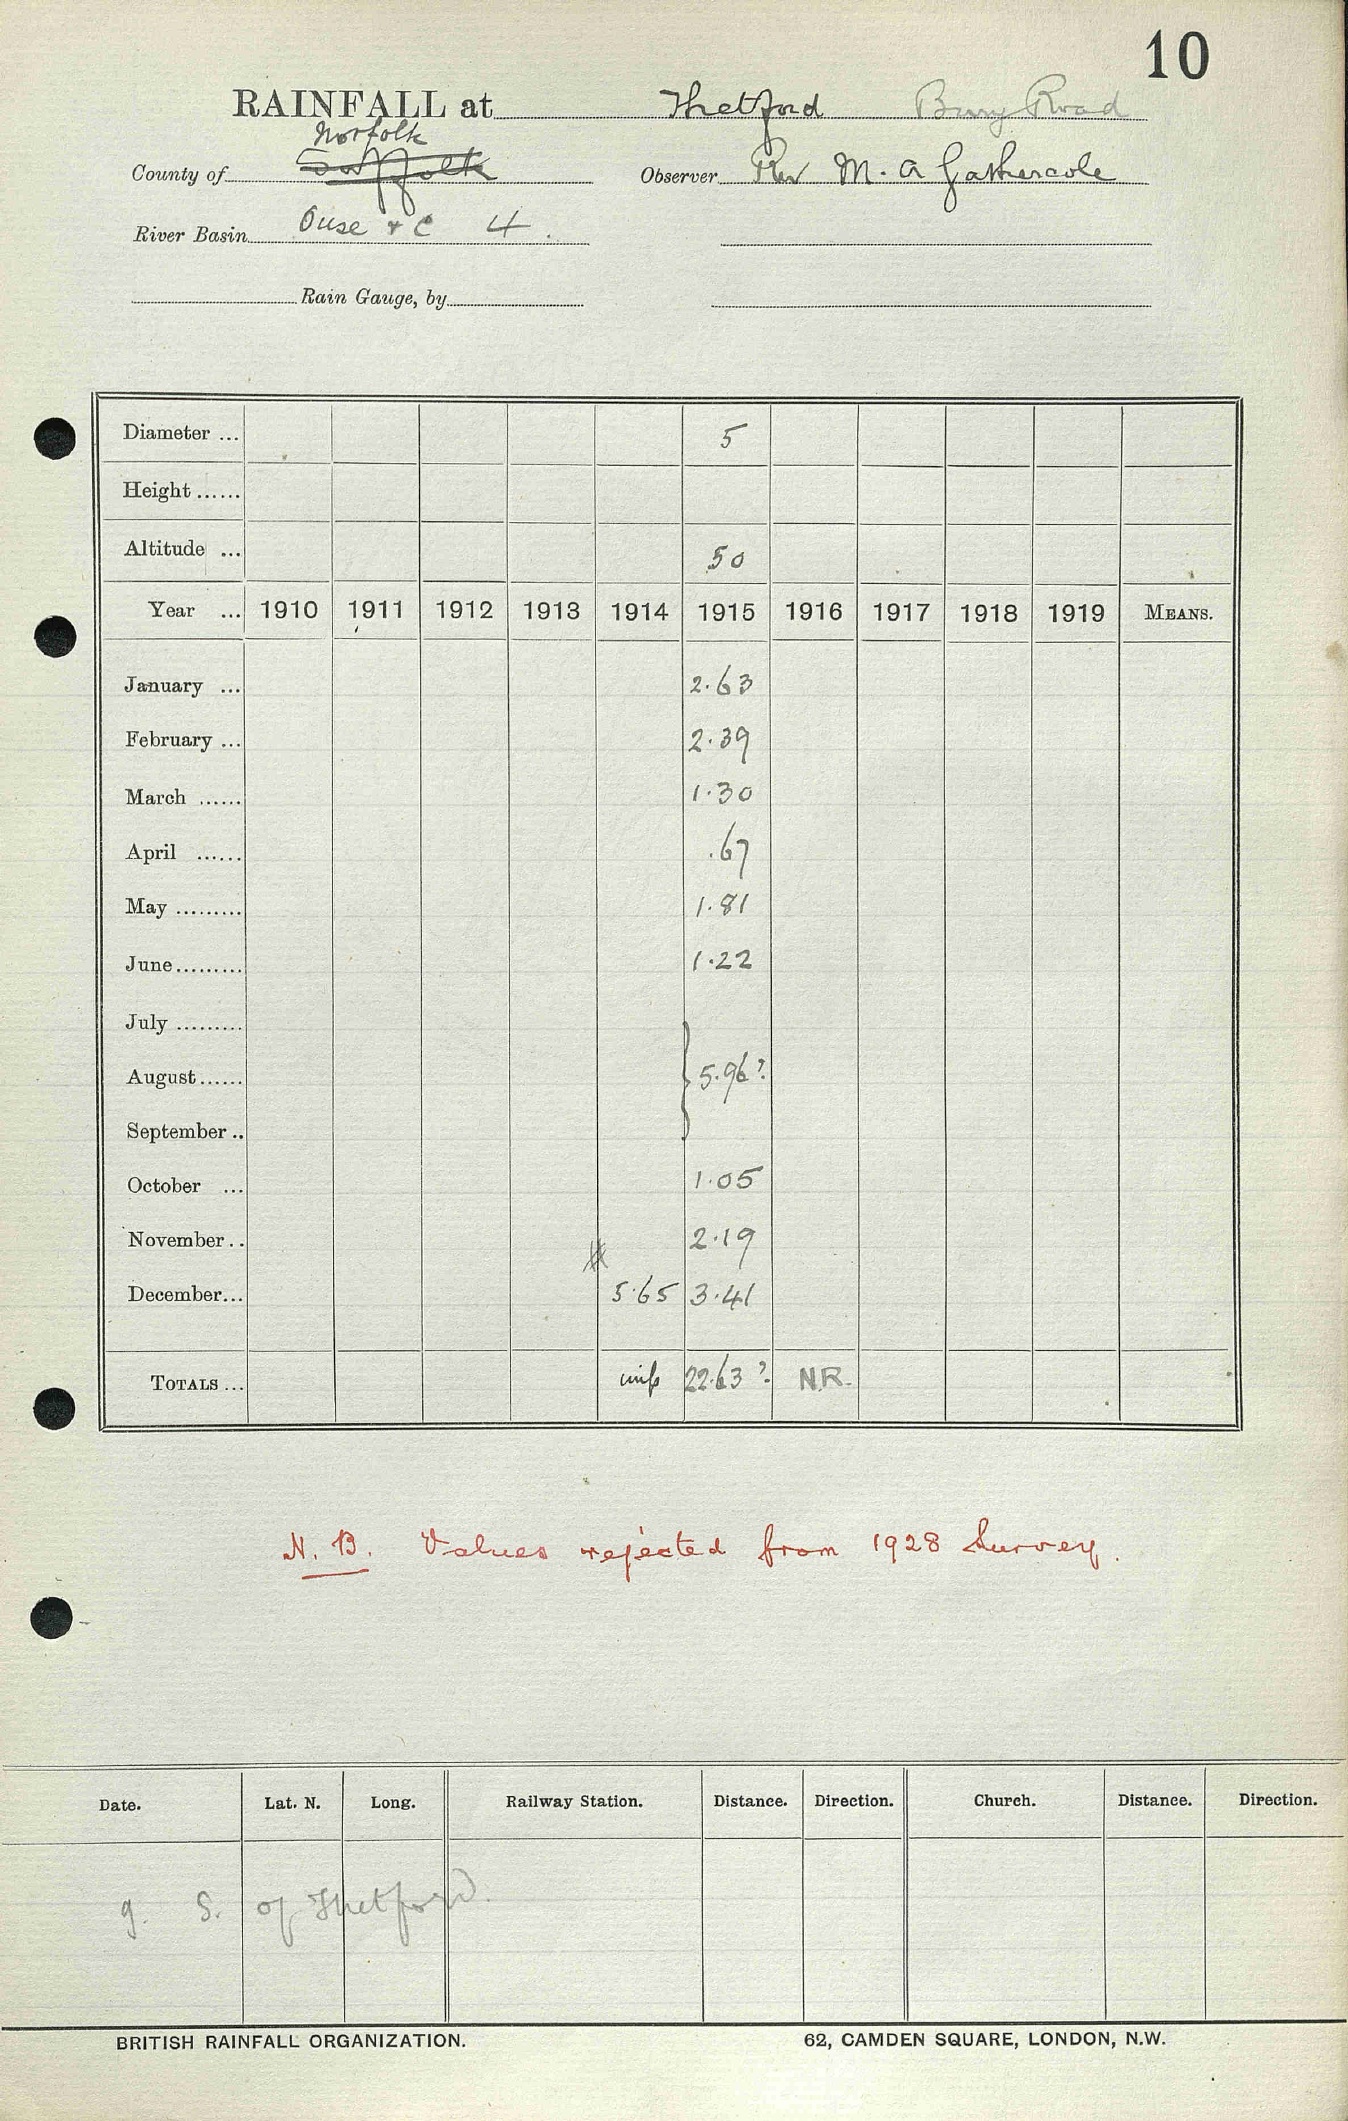 10
RAINFALL at Thetford Bury Road
Norfolk
County of Suffolk Observer Rev M. A Gathercole
River Basin Ouse & C 4.
Rain Gauge, by
Diameter ... 5
Height ......
Altitude ... 50
Year ... 1910 1911 1912 1913 1914 1915 1916 1917 1918 1919 MEANS.
January ... 2.63
February ... 2.39
March ...... 1.30
April ...... .67
May ......... 1.81
June......... 1.22
July .........
August...... } 5.96?
September ..
October ... 1.05
November .. 2.19
December... 5.65 3.41
TOTALS ... 22.63 ? N.R.
N.B. Values rejected from 1928 Survey.
Date. Lat. N. Long. Railway Station. Distance. Direction. Church. Distance. Direction.
g. S. of Thetford.
BRITISH RAINFALL ORGANIZATION. 62, CAMDEN SQUARE, LONDON, N.W.